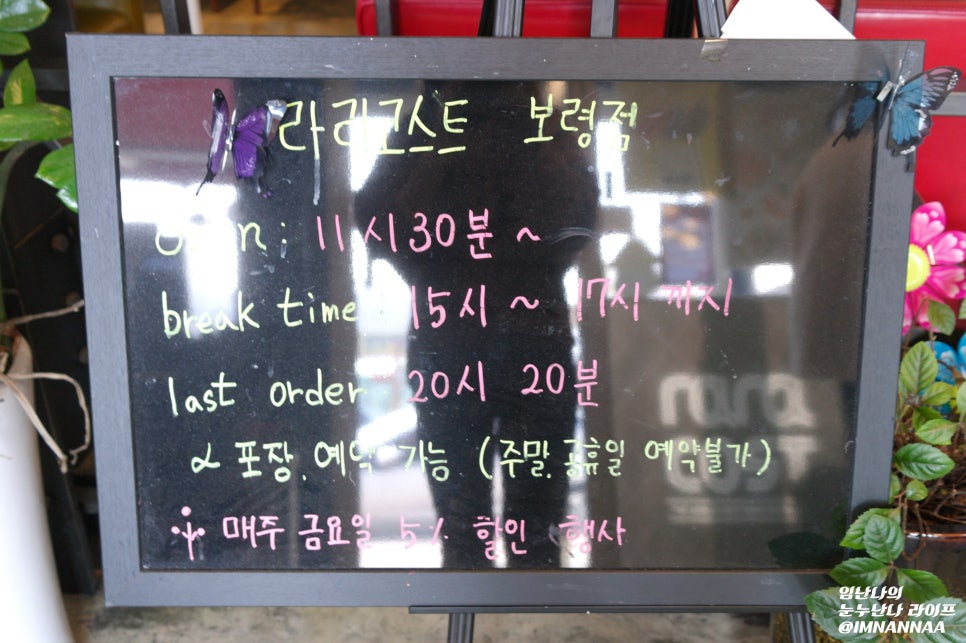 라라코스트 보령점
open : 11시 30분 ~
break time : 15시 ~ 17시 까지
last order 20시 20분
포장, 예약 가능 (주말, 공휴일 예약불가)
매주 금요일 5% 할인 행사
rara
COST
임난나의
눈누난나 라이프
@IMNANNAA